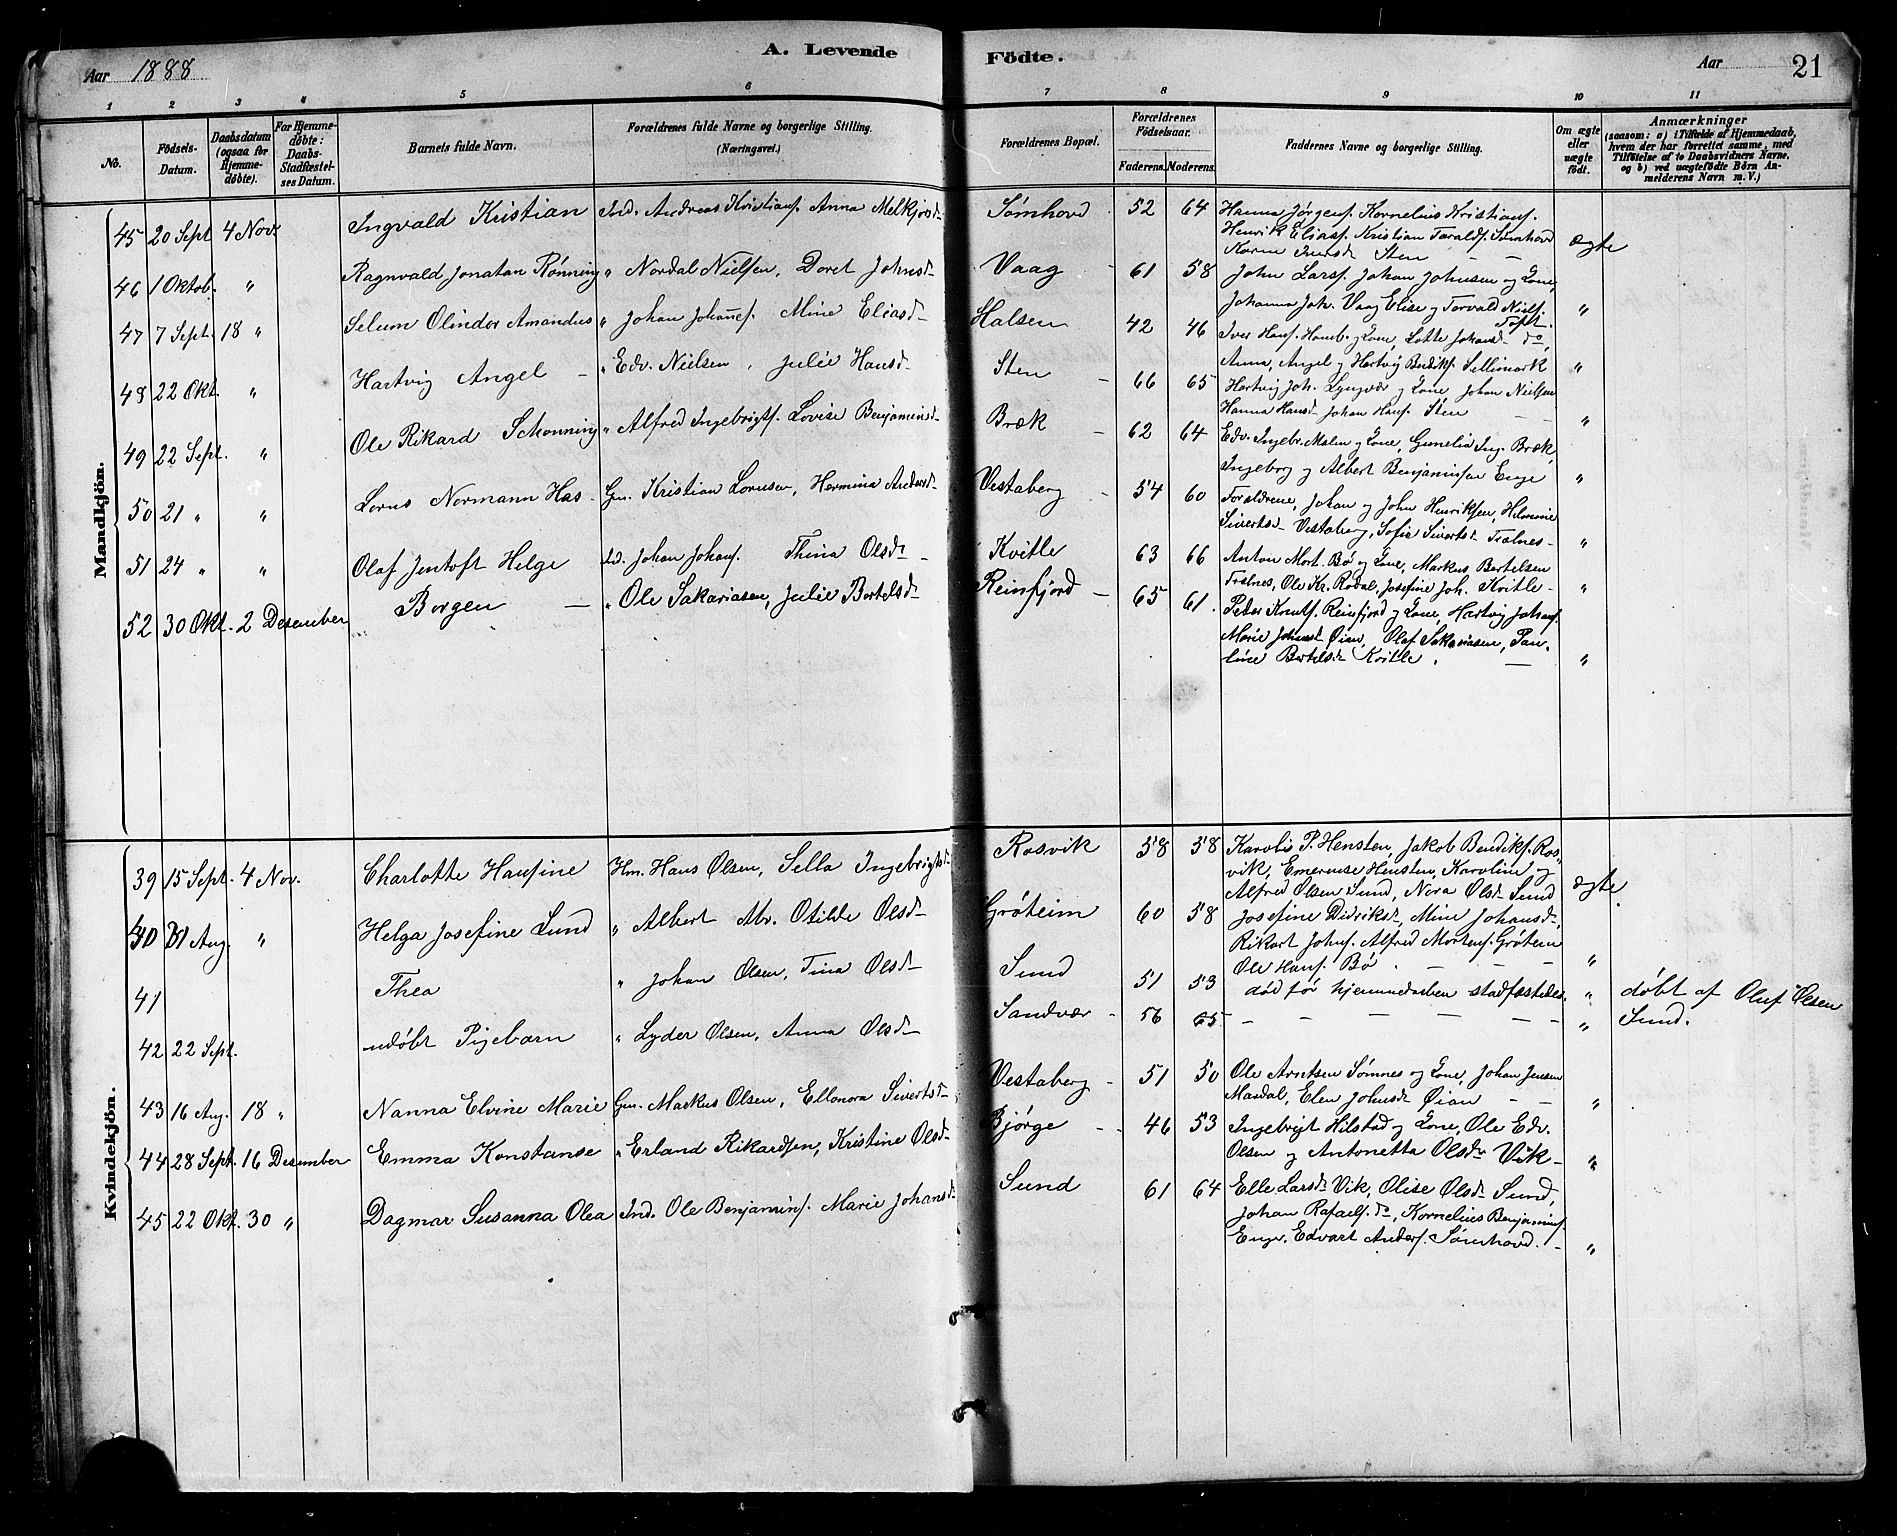 A. Levende Födte.
Aar 1888
Aar 21
1 2 3 4 5 6 7 8 9 10 11
No.
Födsels-Datum.
Daabsdatum (ogsaa for Hjemme-döbte).
For Hjemme-döbte: Daabs-Stadfæstel-ses Datum.
Barnets fulde Navn.
Forældrenes fulde Navne og borgerlige Stilling. (Næringsvei.)
Forældrenes Bopæl.
Forældrenes Födselsaar.
Faderens. Moderens.
Faddernes Navne og borgerlige Stilling.
Om ægte eller uægte födt.
Anmærkninger
(saasom: a) i Tilfælde af Hjemmedaab, hvem der har forrettet samme, med Tilföielse af to Daabsvidners Navne, og b) ved uægtefödte Börn An-melderens Navn m. V.)
Mandkjön.
45 20 Sept 4 Nov. Ingvald Kristian Ind. Andreas Kristians. Anna Melkjorsd Sømhovd 52 64 Hanna Jørgens. Kornelius Kristians.
Henrik Elias. Kristian Taralds. Sømhovd
Sten ægte
46 1 Oktob. " Ragnvald Jonatan Rønning " Nordal Nielsen, Doret Johnsd Vaag 61 58 John Lars. Johan Johnsen og Kone,
Johanna Joh. Vaag Elise og Torvald Niels.
Toft. "
47 7 Sept. 18 " Selum Olindor Amandus " Johan Johannes. Mine Eliasd Halsen 42 46 Iver Hans. og Kone, Lotte Johansd do,
Anna, Angel og Hartvig Bendiks. Sellimark "
48 22 Okt. " Hartvig Angel " Edv. Nielsen, Julie Hansd Sten 66 65 Hartvig Joh. Lyngvær og Kone, Johan Nielsen
Hanna Hansd Johan Hans. Sten "
49 22 Sept. " Ole Rikard Schonning " Alfred Ingebrigts. Lovise Benjaminsd Bræk 62 64 Edv. Ingebr. Malen og Kone, Gunelia Ing. Bræk,
Ingeborg og Albert Benjaminsen Enge "
50 21 " " Lorns Normann Has Gm. Kristian Lornsen, Hermina Andersd Vestaberg 54 60 Forældrene, Johan og John Henriksen,
Sivertsd Vestaberg, Sofie Sivertsd Trælnes "
51 24 " " Olaf Jentoft Helge Ind. Johan Johans. Thina Olsd Kvitle 63 66 Anton Mort. Bø og Kone, Markus Bertelsen
Trælnes, Ole Kr. Rødal, Josefine Joh. Kvitle "
52 30 Okt. 2 Desember Borgen " Ole Sakariasen, Julie Bertelsd Reinfjord 65 61. Peter Knuts. Reinfjord og Kone, Hartvig Johans.
Marie Johansd Øian, Olaf Sakariasen, Pau-
line Bertelsd Kvitle. "
Kvindekjön.
39 15 Sept. 4 Nov. Charlotte Hansine Hm. Hans Olsen, Sella Ingebrigtsd Rosvik 58 58 Karolis P. Hensten, Jakob Bendiks. Ros-
vik, Emerense Hensten, Karoline og
Alfred Olsen Sund, Nora Olsd Sund ægte
40 Aug. " Helga Josefine Lund " Albert Abr. Otilde Olsd Grøteim 60 58 Josefine Didriksd, Mine Johansd,
Rikart Johs. Alfred Mortens. Grøteim
Ole Hans. Bø "
41 Thea " Johan Olsen, Tina Olsd Sund 51 53 død før hjemmedaaben stadfæstedes " døbt af Oluf Olsen
Sund.
42 22 Sept. udøbt Pigebarn " Lyder Olsen, Anna Olsd Sandvær 56 65 "
43 16 Aug. 18 " Nanna Elvine Marie Gm. Markus Olsen, Ellonora Sivertsd Vestaberg 51 50 Ole Arntsen Sømnes og Kone, Johan Jensen
Mardal, Elen Johnsd Øian "
44 28 Sept. 16 Desember Emma Konstanse " Erland Rikardsen, Kristine Olsd Bjørge 46 53 Ingebrigt Hilstad og Kone, Ole Edv.
Olsen og Antonetta Olsdr Vik "
45 22 Okt. 30 " Dagmar Susanna Olea Ind. Ole Benjamins. Marie Johansd Sund 61 64 Elle Larsd Vik, Olise Olsd Sund,
Johan Rafaels. do, Kornelius Benjamins.
Enge, Edvart Anders. Sømhovd. "